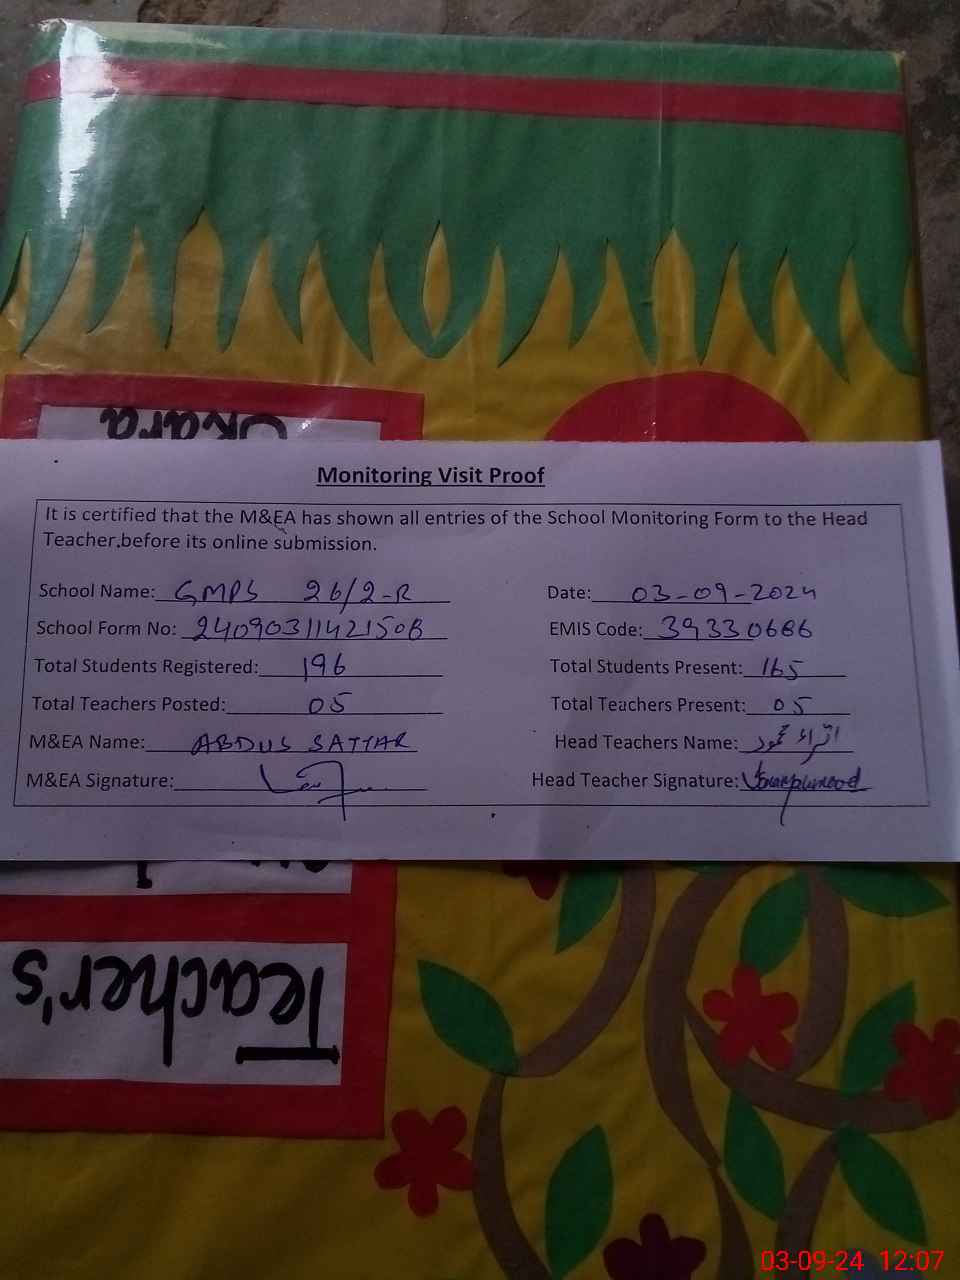 Okara
Monitoring Visit Proof
It is certified that the M&EA has shown all entries of the School Monitoring Form to the Head
Teacher,before its online submission.
School Name: GMPS 26/2-R Date: 03-09-2024
School Form No: 24090311421508 EMIS Code: 39330686
Total Students Registered: 196 Total Students Present: 165
Total Teachers Posted: 05 Total Teachers Present: 05
M&EA Name: ABDUS SATTAR Head Teachers Name: اقراء محمود
M&EA Signature: Head Teacher Signature:
Teacher's
03-09-24 12:07